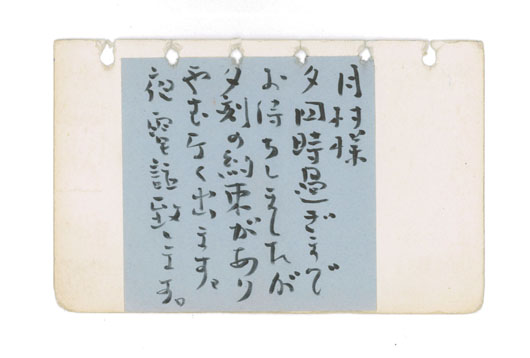 月村様
夕四時過ぎまで
お待ちしましたが
夕刻の約束があり
やむなく出ます。
夜電話致します。